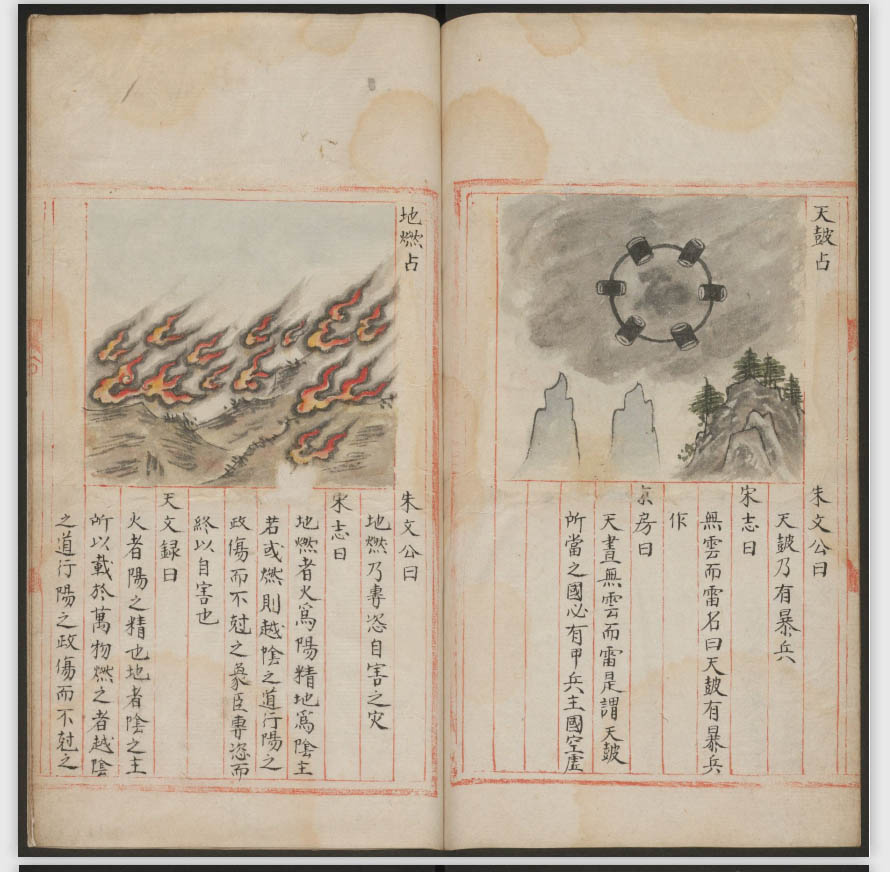 天皷占
朱文公曰
天皷乃有暴兵
宋志曰
無雲而雷名曰天皷有暴兵
作
京房曰
天晝無雲而雷是謂天皷
所當之國必有甲兵主國空虛
地燃占
朱文公曰
地燃乃專恣自害之灾
宋志曰
地燃者火爲陽精地爲陰主
若或燃則越陰之道行陽之
政傷而不尅之象臣專恣而
終以自害也
天文録曰
火者陽之精也地者陰之主
所以載於萬物燃之者越陰
之道行陽之政傷而不尅之